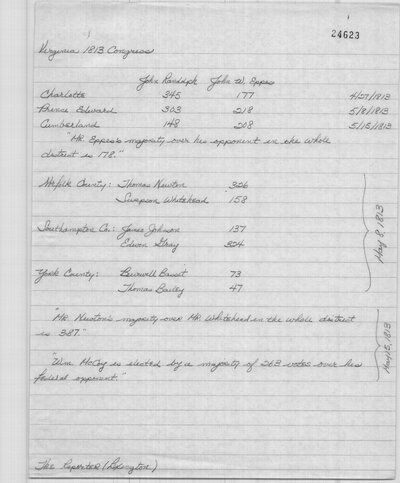 24623
Virginia 1813 Congress
John Randolph John W. Eppes
Charlotte 345 177 4/27/1813
Prince Edward 303 218 5/8/1813
Cumberland 148 208 5/15/1813
"Mr. Eppes's majority over his opponent in the whole
district is 178."
Norfolk County: Thomas Newton 326
Simpson Whitehead 158
Southampton Co: James Johnson 137
Edwin Gray 304
York County: Burwell Basset 73
Thomas Bailey 47
May 8, 1813
"Mr. Newton's majority over Mr. Whitehead in the whole district
is 387."
"Wm. McCoy is elected by a majority of 263 votes over his
federal opponent."
May 15, 1813
The Reporter (Lexington)